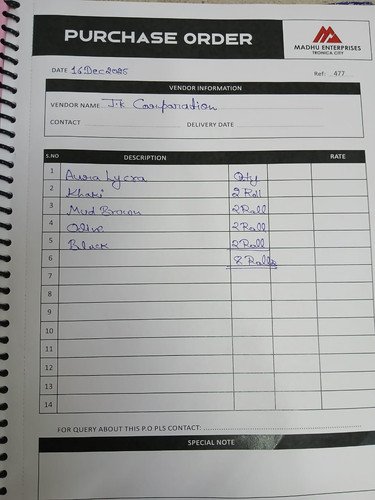 PURCHASE ORDER
MADHU ENTERPRISES
TRONICA CITY
DATE 16 Dec 2025
Ref: 477
VENDOR INFORMATION
VENDOR NAME J.k Coorparation
CONTACT DELIVERY DATE
S.NO DESCRIPTION RATE
1 Aura Lycra Qty
2 Khaki 2 Roll
3 Mud Brown 2 Roll
4 Olive 2 Roll
5 Black 2 Roll
6 8 Rolls
7
8
9
10
11
12
13
14
FOR QUERY ABOUT THIS P.O PLS CONTACT:
SPECIAL NOTE